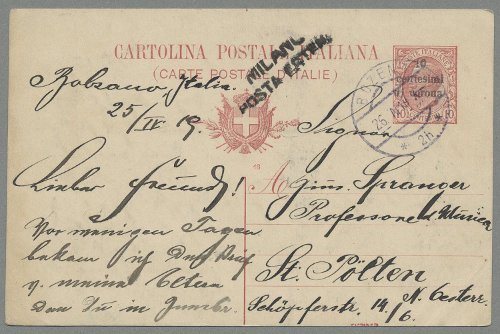 CARTOLINA POSTALE ITALIANA
(CARTE POSTALE D'ITALIE)
MILANO
POSTA ESTERA
10
centesimi
di corona
BOZEN
Bolzano, Italia
25/IV 19.
Signor
Lieber Freund!
Spranger
Professore di Musica
Vor wenigen Tagen
bekam ich Brief
v. meinen Eltern
den Du in
St. Pölten
N. Oesterr.
Schöpferstr. 14/6.